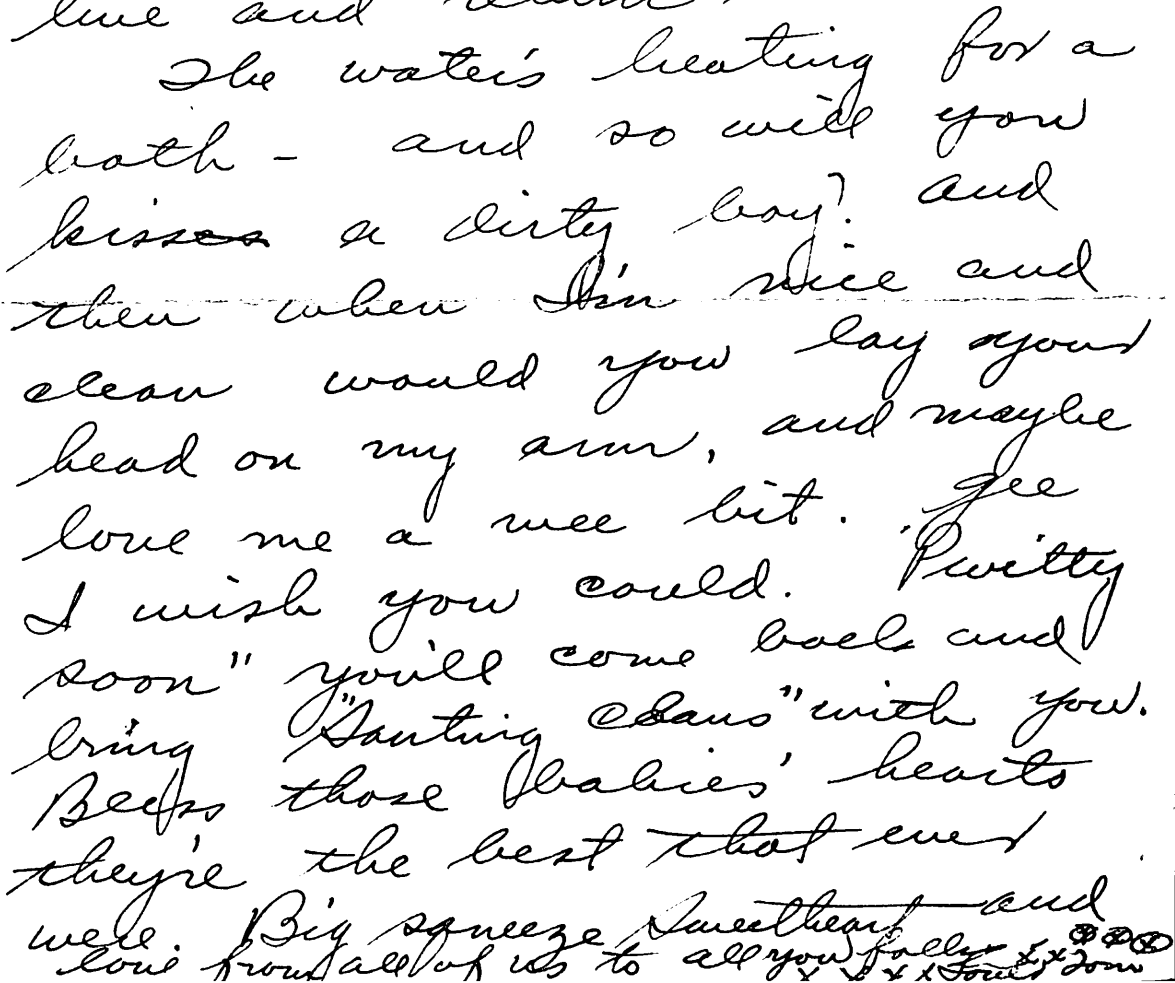 love and
The water's heating for a
bath - and so will you
kiss a dirty boy? And
then when I'm nice and
clean would you lay your
head on my arm, and maybe
love me a wee bit. Gee
I wish you could. "Pwitty
soon" you'll come back and
bring "Santing Claus" with you.
Bless those babies' hearts
they're the best that ever
were. Big squeeze Sweetheart and
love from all of us to all you folks x x ⊗ ⊗ ⊗
x x x x Tom